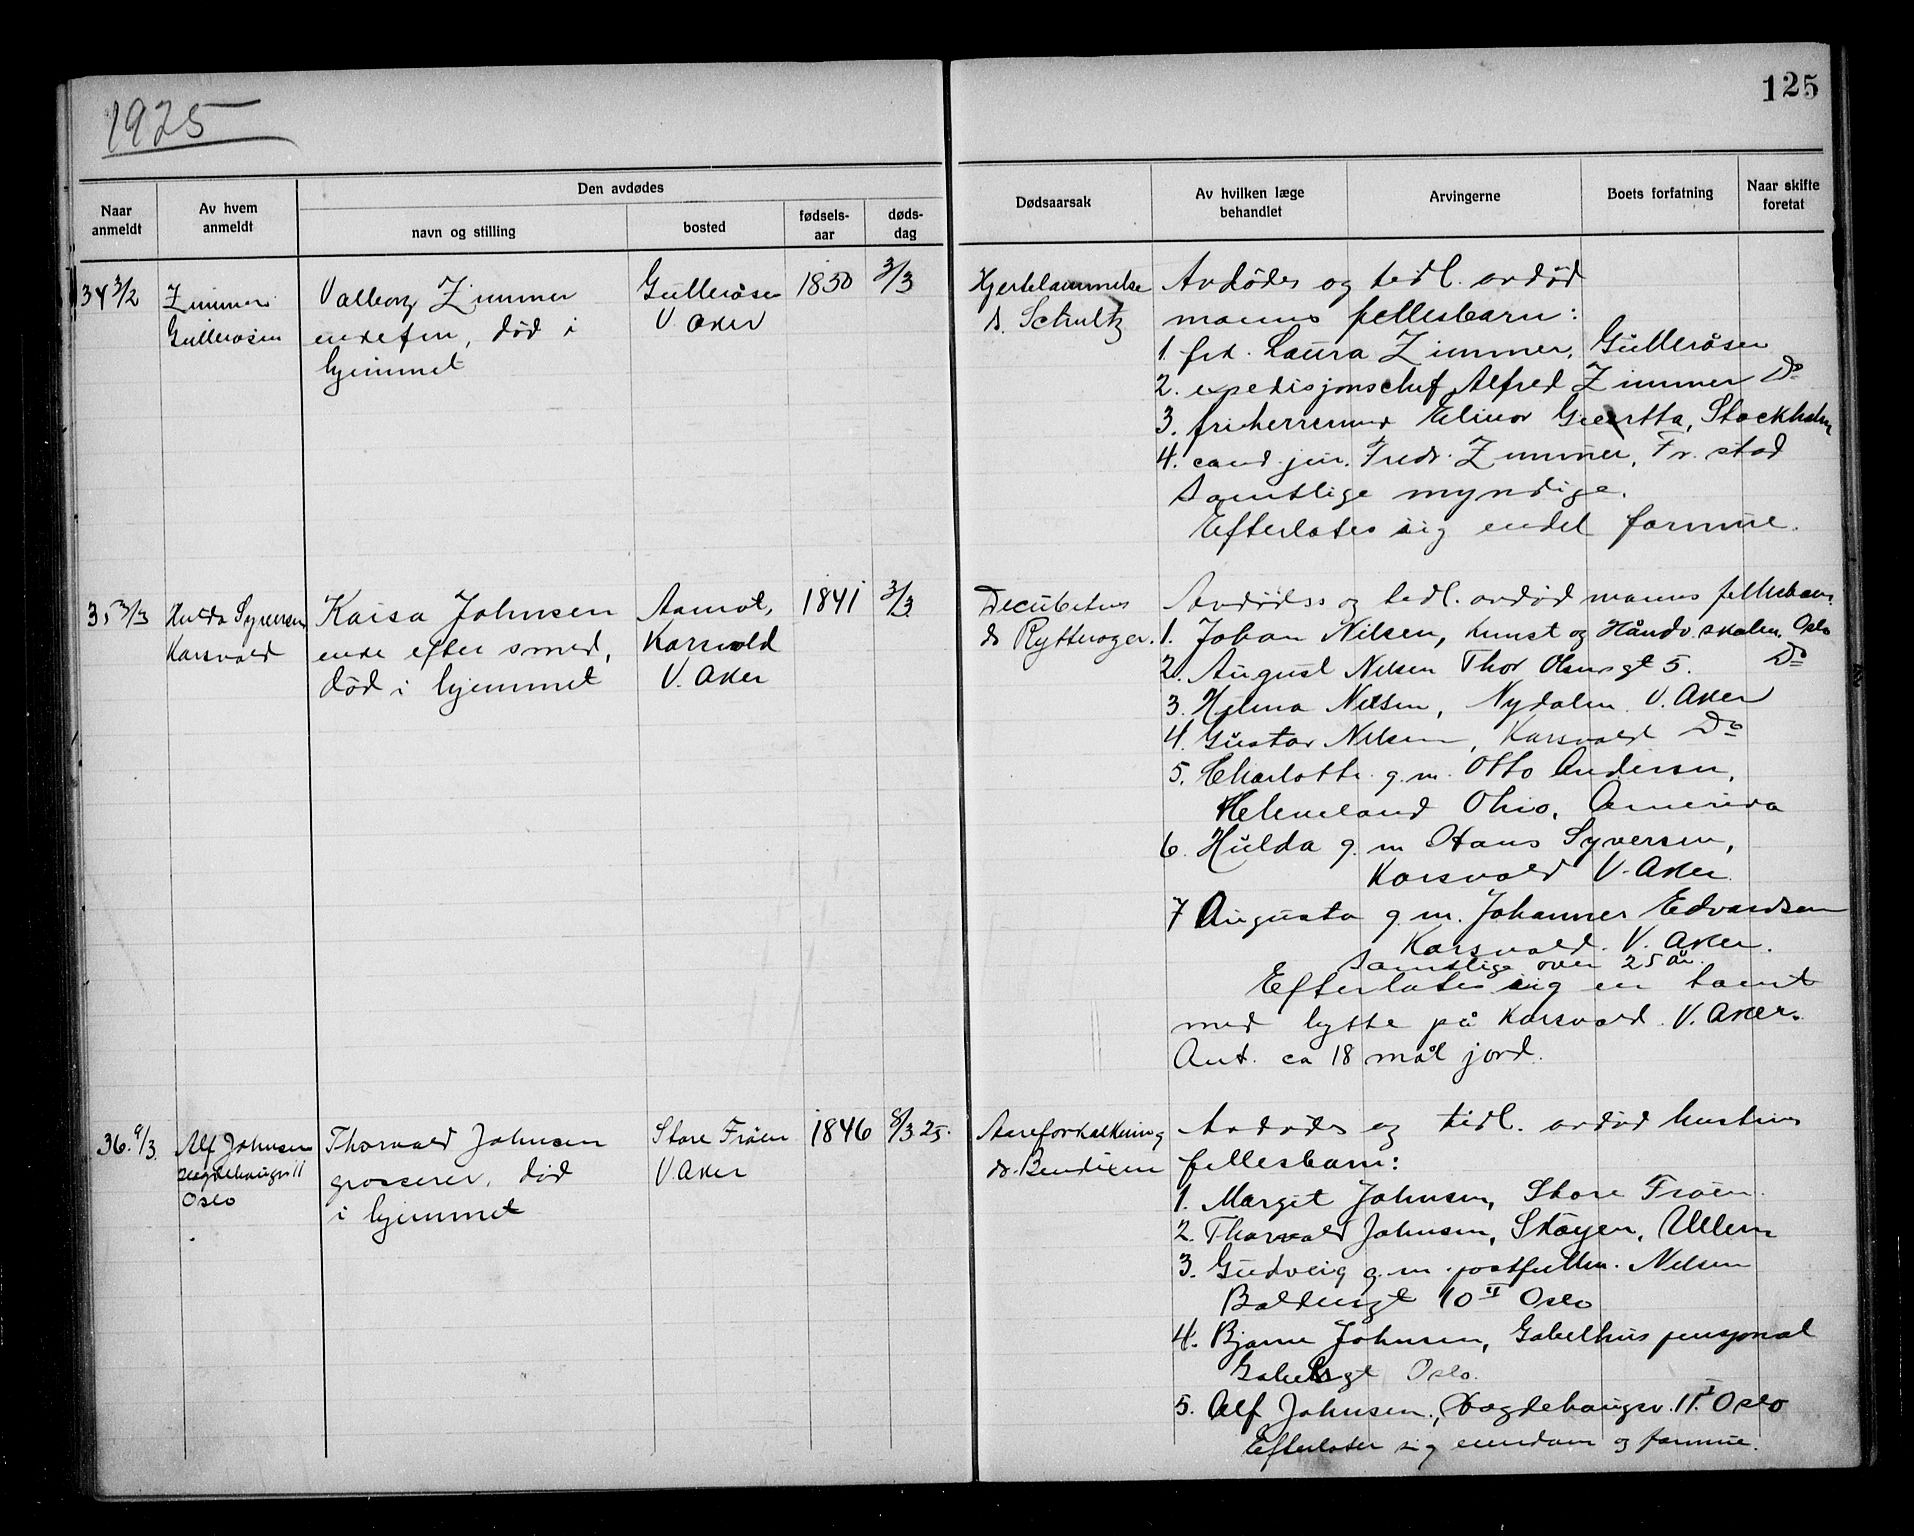 1925
125
Naar anmeldt
Av hvem anmeldt
Den avdødes
navn og stilling
bosted
fødsels-aar
døds-dag
Dødsaarsak
Av hvilken læge behandlet
Arvingerne
Boets forfatning
Naar skifte foretat
34 3/2
Zimmer
Gulleråsen
Valborg Zimmer
enkefru, død i
hjemmet
Gulleråsen
V. Aker
1850
3/3
Hjertelammelse
d. Schultz
Avdødes og tidl. avdød
manns fellesbarn:
1. frk. Laura Zimmer, Gulleråsen
2. expedisjonschef Alfred Zimmer Do
3. friherreinne Elinor Stockholm
4. cand. jur. Fredr. Zimmer, Fr.stad
Samtlige myndige.
Efterlater sig endel formue.
35 3/3
Hulda Syversen
Karsvold
Kaisa Johnsen
enke efter smed,
død i hjemmet
Aamot,
Karsvold
V. Aker
1841
3/3
Decubitus
dr Rytterager.
Avdødes og tidl. avdød manns fellesbarn.
1. Johan Nilsen, Kunst og Håndv. skolen. Oslo
2. August Nilsen Thor Olsensgt 5. Do
3. Helma Nilsen, Nydalen V. Aker
4. Gustav Nilsen, Karsvold Do
5. Charlotte g.m. Otto Andersen,
Cleveland Ohio, Amerika
6. Hulda g. m Hans Syversen,
Karsvold V. Aker.
7 Augusta g.m. Johannes Edvardsen
Karsvold. V. Aker.
Samtlige over 25 år.
Efterlater sig en tomt
med hytte på Karsvold. V. Aker.
Ant. ca 18 mål jord.
36. 9/3.
Alf Johnsen
Hægdehaugsv 11
Oslo
Thorvald Johnsen
grosserer, død
i hjemmet
Store Frøen
V. Aker
1846
8/3 25.
Aareforkalkning
dr. Bendixen
Avdødes og tidl. avdød hustrus
fellesbarn:
1. Margit Johnsen, Store Frøen.
2. Thorvald Johnsen, Skøyen, Ullern
3. Gudveig g.m. postfullm. Nilsen
Baldersgt 10 II Oslo
4. Bjarne Johnsen, Gabelshus pensjonat
Gabelsgt Oslo.
5. Alf Johnsen, Hægdehaugsv. 11 I Oslo
Efterlater sig eiendom og formue.